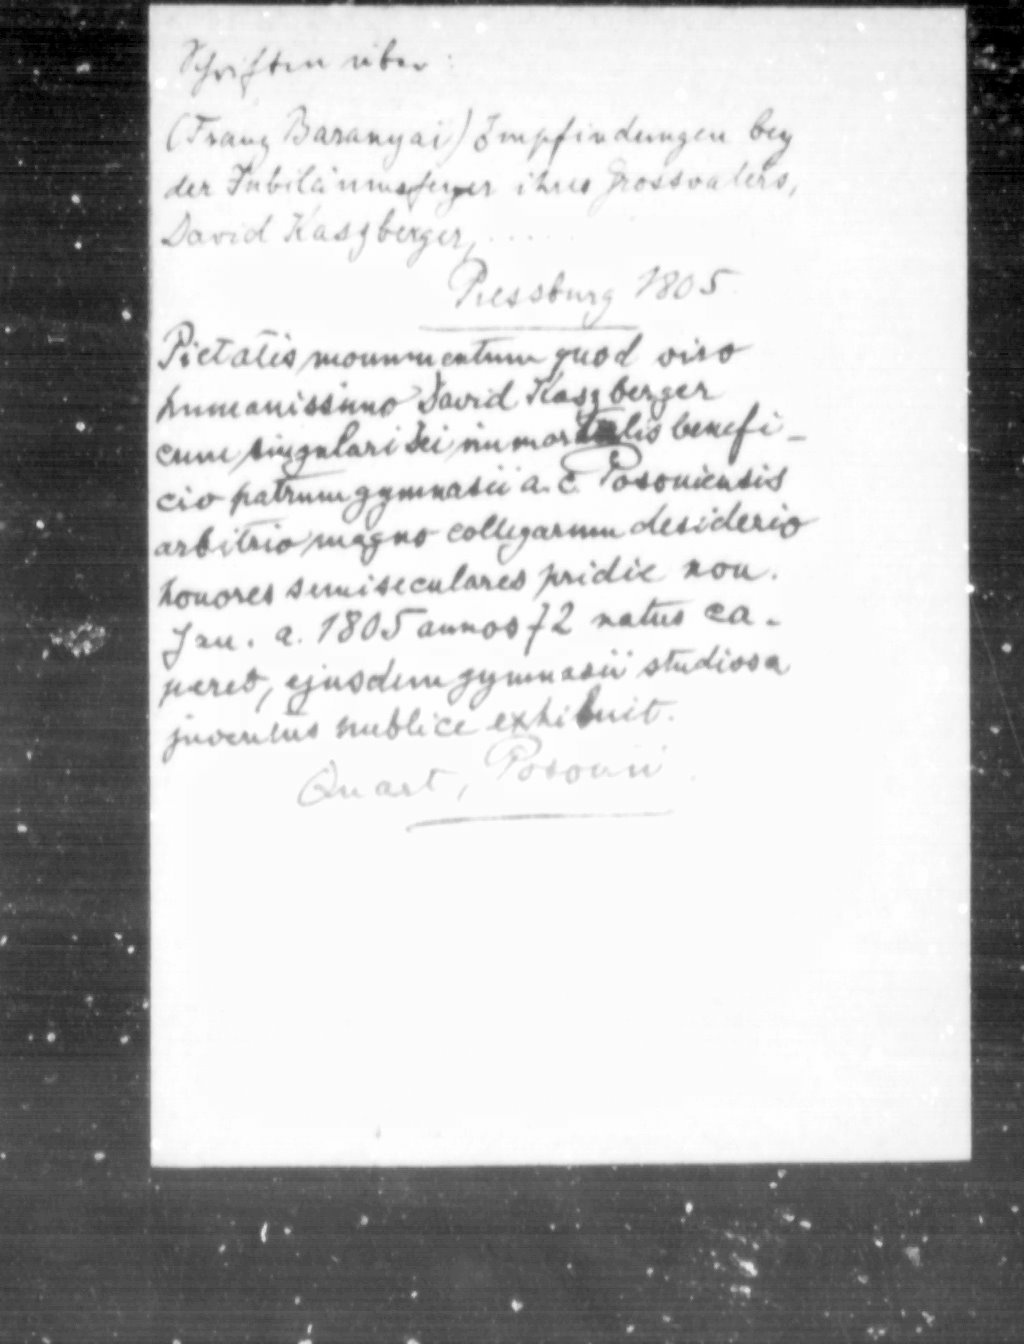 Schriften über:
(Franz Baranyai) Empfindungen bey
der Jubiläumsfeyer ihres Grossvaters,
David Kaszberger, .....
Pressburg 1805.
Pietatis monumentum quod viro
humanissimo David Kaszberger
cum singulari Dei immortalis benefi-
cio patrum gymnasii a. c. Posoniensis
arbitrio magno collegarum desiderio
honores semiseculares pridie non.
Jan. a. 1805 annos 72 natus ca-
peret, ejusdem gymnasii studiosa
juventus publice exhibuit.
Quart, Posonii.